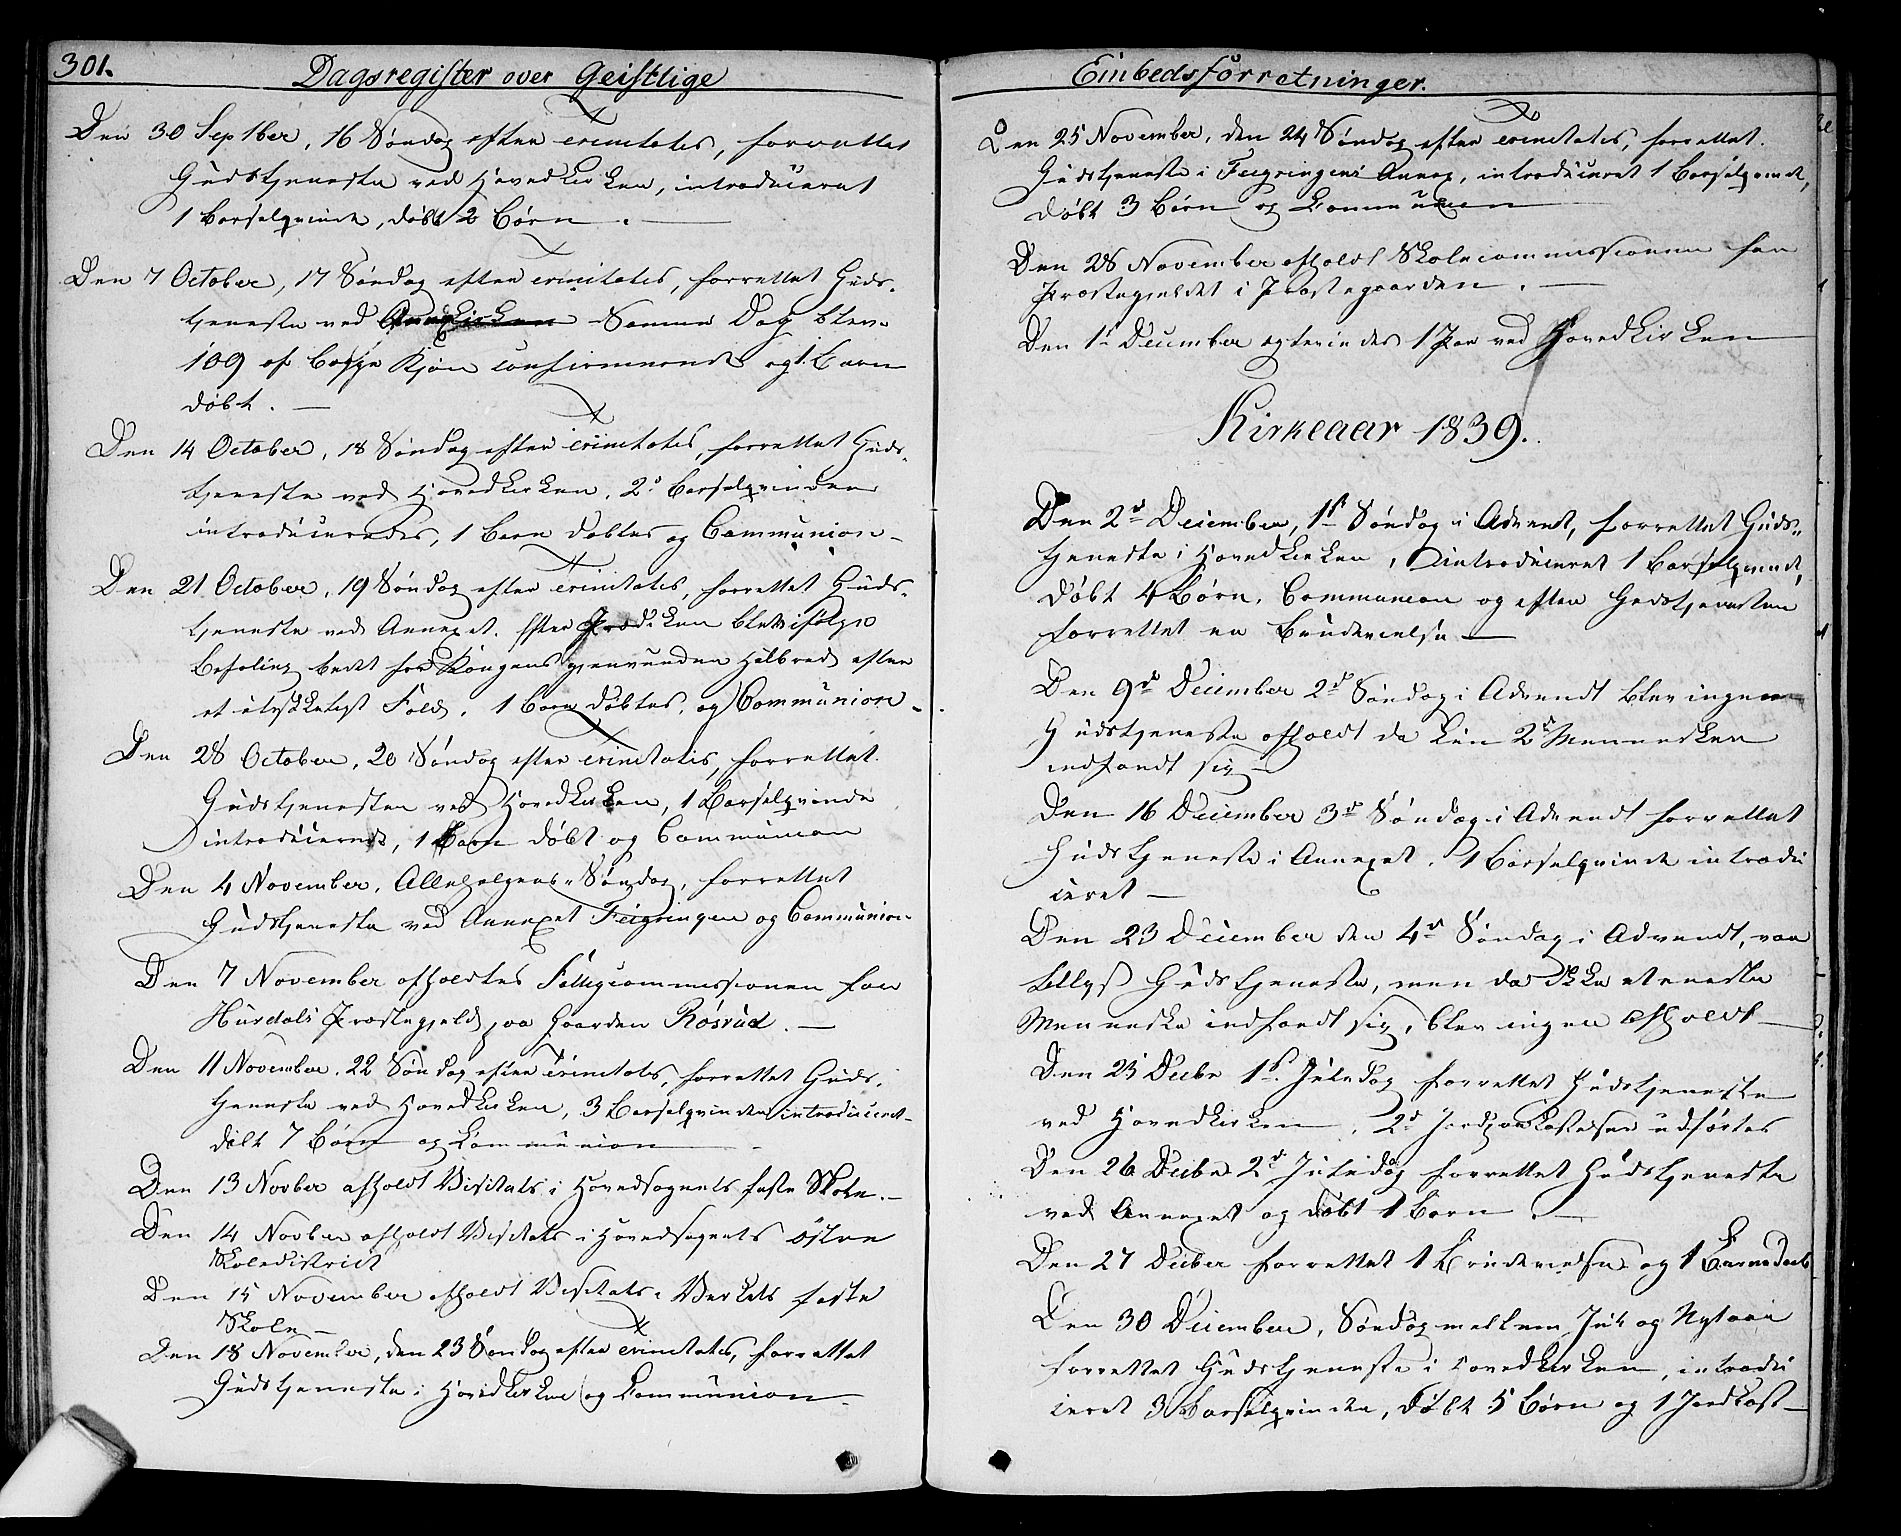 301.
Dagsregister over Geistlige
Den 30 Septber, 16 Søndag efter Trinitatis, forrettet
Gudstjeneste ved Hovedkirken, introduceret
1 Barselqvinde, døbt 2 Børn.
Den 7 October, 17 Søndag efter Trinitatis, forrettet Guds-
tjeneste ved Annexkirken Samme Dag blev
109 af begge Kjøn confirmerede og 1 Barn
døbt.
Den 14 October, 18 Søndag efter Trinitatis, forrettet Guds-
tjeneste ved Hovedkirken, 2 Barselqvinder
introduceredes, 1 Barn døbtes og Communion
Den 21 October, 19 Søndag efter Trinitatis, forrettet Guds-
tjeneste ved Annexet. Efter Prædiken blev ifølge
Befaling bedet for Kongens gjenvundne Helbred efter
et ulykkeligt Fald, 1 Barn døbtes, og Communion
Den 28 October, 20 Søndag efter Trinitatis, forrettet
Gudstjenesten ved Hovedkirken, 1 Barselqvinde
introduceret, 1 Barn døbt og Communion
Den 4 November, Allehelgens-Søndag, forrettet
Gudstjeneste ved Annexet Feigringen og Communion
Den 7 November afholdtes Fattigcommissionen for
Hurdals Præstegjeld paa Gaarden Rösrud.
Den 11 November, 22 Søndag efter Trinitatis, forrettet Guds-
tjeneste ved Hovedkirken, 3 Barselqvinder introduceret
døbt 7 Børn og Communion
Den 13 Novber afholdt Visitats i Hovedsognets faste Skole.
Den 14 Novber afholdt Visitats i Hovedsognets østre
Skoledistrict
Den 15 November afholdt Visitats i Verkets faste
Skole
Den 18 November, den 23 Søndag efter Trinitatis, forrettet
Gudstjeneste i Hovedkirken og Communion.
Embedsforretninger.
Den 25 November, den 24 Søndag efter Trinitatis, forrettet
Gudstjeneste i Feigringens Annex, introduceret 1 Barselqvinde,
døbt 3 Børn og Communion
Den 28 November afholdt Skolecommissionen for
Præstegjeldet i Præstegaarden.
Den 1 December ægteviedes 1 Par ved Hovedkirken
Kirkeaar 1839.
Den 2d December, 1st Søndag i Advent, forrettet Guds-
tjeneste i Hovedkirken, introduceret 1 Barselqvinde,
døbt 4 Børn, Communion og efter Gudstjenesten
forrettet en Brudevielse
Den 9d December 2d Søndag i Advendt blev ingen
Gudstjeneste afholdt da kun 2 Mennesker
indfandt sig
Den 16 December 3d Søndag i Advendt forrettet
Gudstjeneste i Annexet, 1 Barselqvinde introdu
ceret
Den 23 December den 4d Søndag i Advendt, var
tillyst Gudstjeneste, men da ikke et eneste
Menneske indfandt sig, blev ingen afholdt
Den 25 Decbr 1st Juledag forrettet Gudstjeneste
ved Hovedkirken, 2d Jordpaakastelser udførtes
Den 26 Decbr 2d Juledag forrettet Gudstjeneste
ved Annexet og døbt 1 Barn.
Den 27 Decber forrettet 1 Brudevielse og 1 Barnedaab
Den 30 December, Søndag mellem Jul og Nytaar
forrettet Gudstjeneste i Hovedkirken, introdu
ceret 3 Barselqvinder, døbt 5 Børn og 1 Jordkast